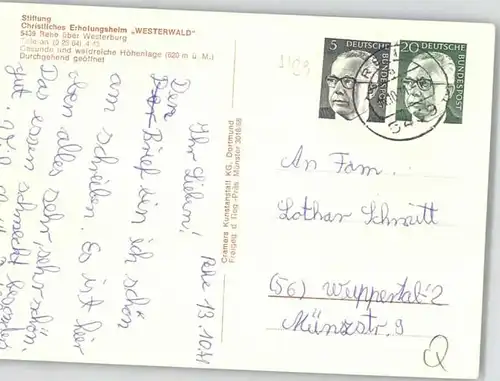 Stiftung
Christliches Erholungsheim „WESTERWALD"
5439 Rehe über Westerburg
Gesunde und waldreiche Höhenlage (620 m ü. M.)
Durchgehend geöffnet
Ihr Lieben! Rehe 13.10.71
Den
Brief bin ich schon
am schreiben. Es ist hier
oben alles sehr, sehr schön.
Das essen schmeckt besonders
gut.
Cramers Kunstanstalt KG, Dortmund
Freigeg. d. Reg.-Präs. Münster 3018/68
5
DEUTSCHE
BUNDESPOST
20
DEUTSCHE
BUNDESPOST
An Fam.
Lothar Schmitt
(56) Wuppertal-2
Münzstr. 9
Q